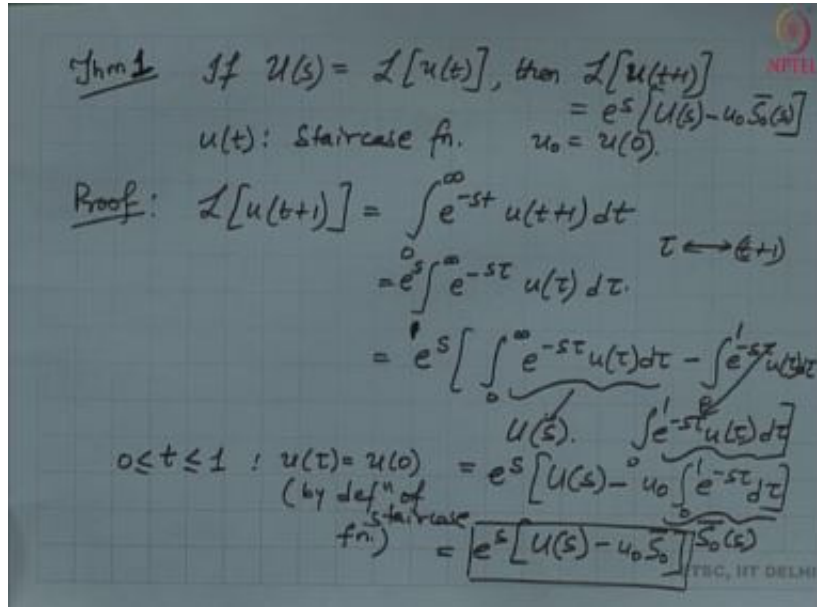 Thm 1 If U(s) = L[u(t)], then L[u(t+1)]
= e^s [U(s) - u₀ S̄₀(s)]
u(t): Staircase fn. u₀ = u(0).
Proof: L[u(t+1)] = ∫₀^∞ e^{-st} u(t+1) dt
τ ⟷ (t+1)
= e^s ∫₁^∞ e^{-sτ} u(τ) dτ.
= e^s [ ∫₀^∞ e^{-sτ} u(τ) dτ - ∫₀^1 e^{-sτ} u(τ) dτ
U(s). ∫₀^1 e^{-sτ} u(τ) dτ]
0 ≤ t ≤ 1 : u(τ) = u(0) = e^s [U(s) - u₀ ∫₀^1 e^{-sτ} dτ]
(by defⁿ of
staircase
fn.) = e^s [U(s) - u₀ S̄₀] S̄₀(s)
NPTEL
ETSC, IIT DELHI